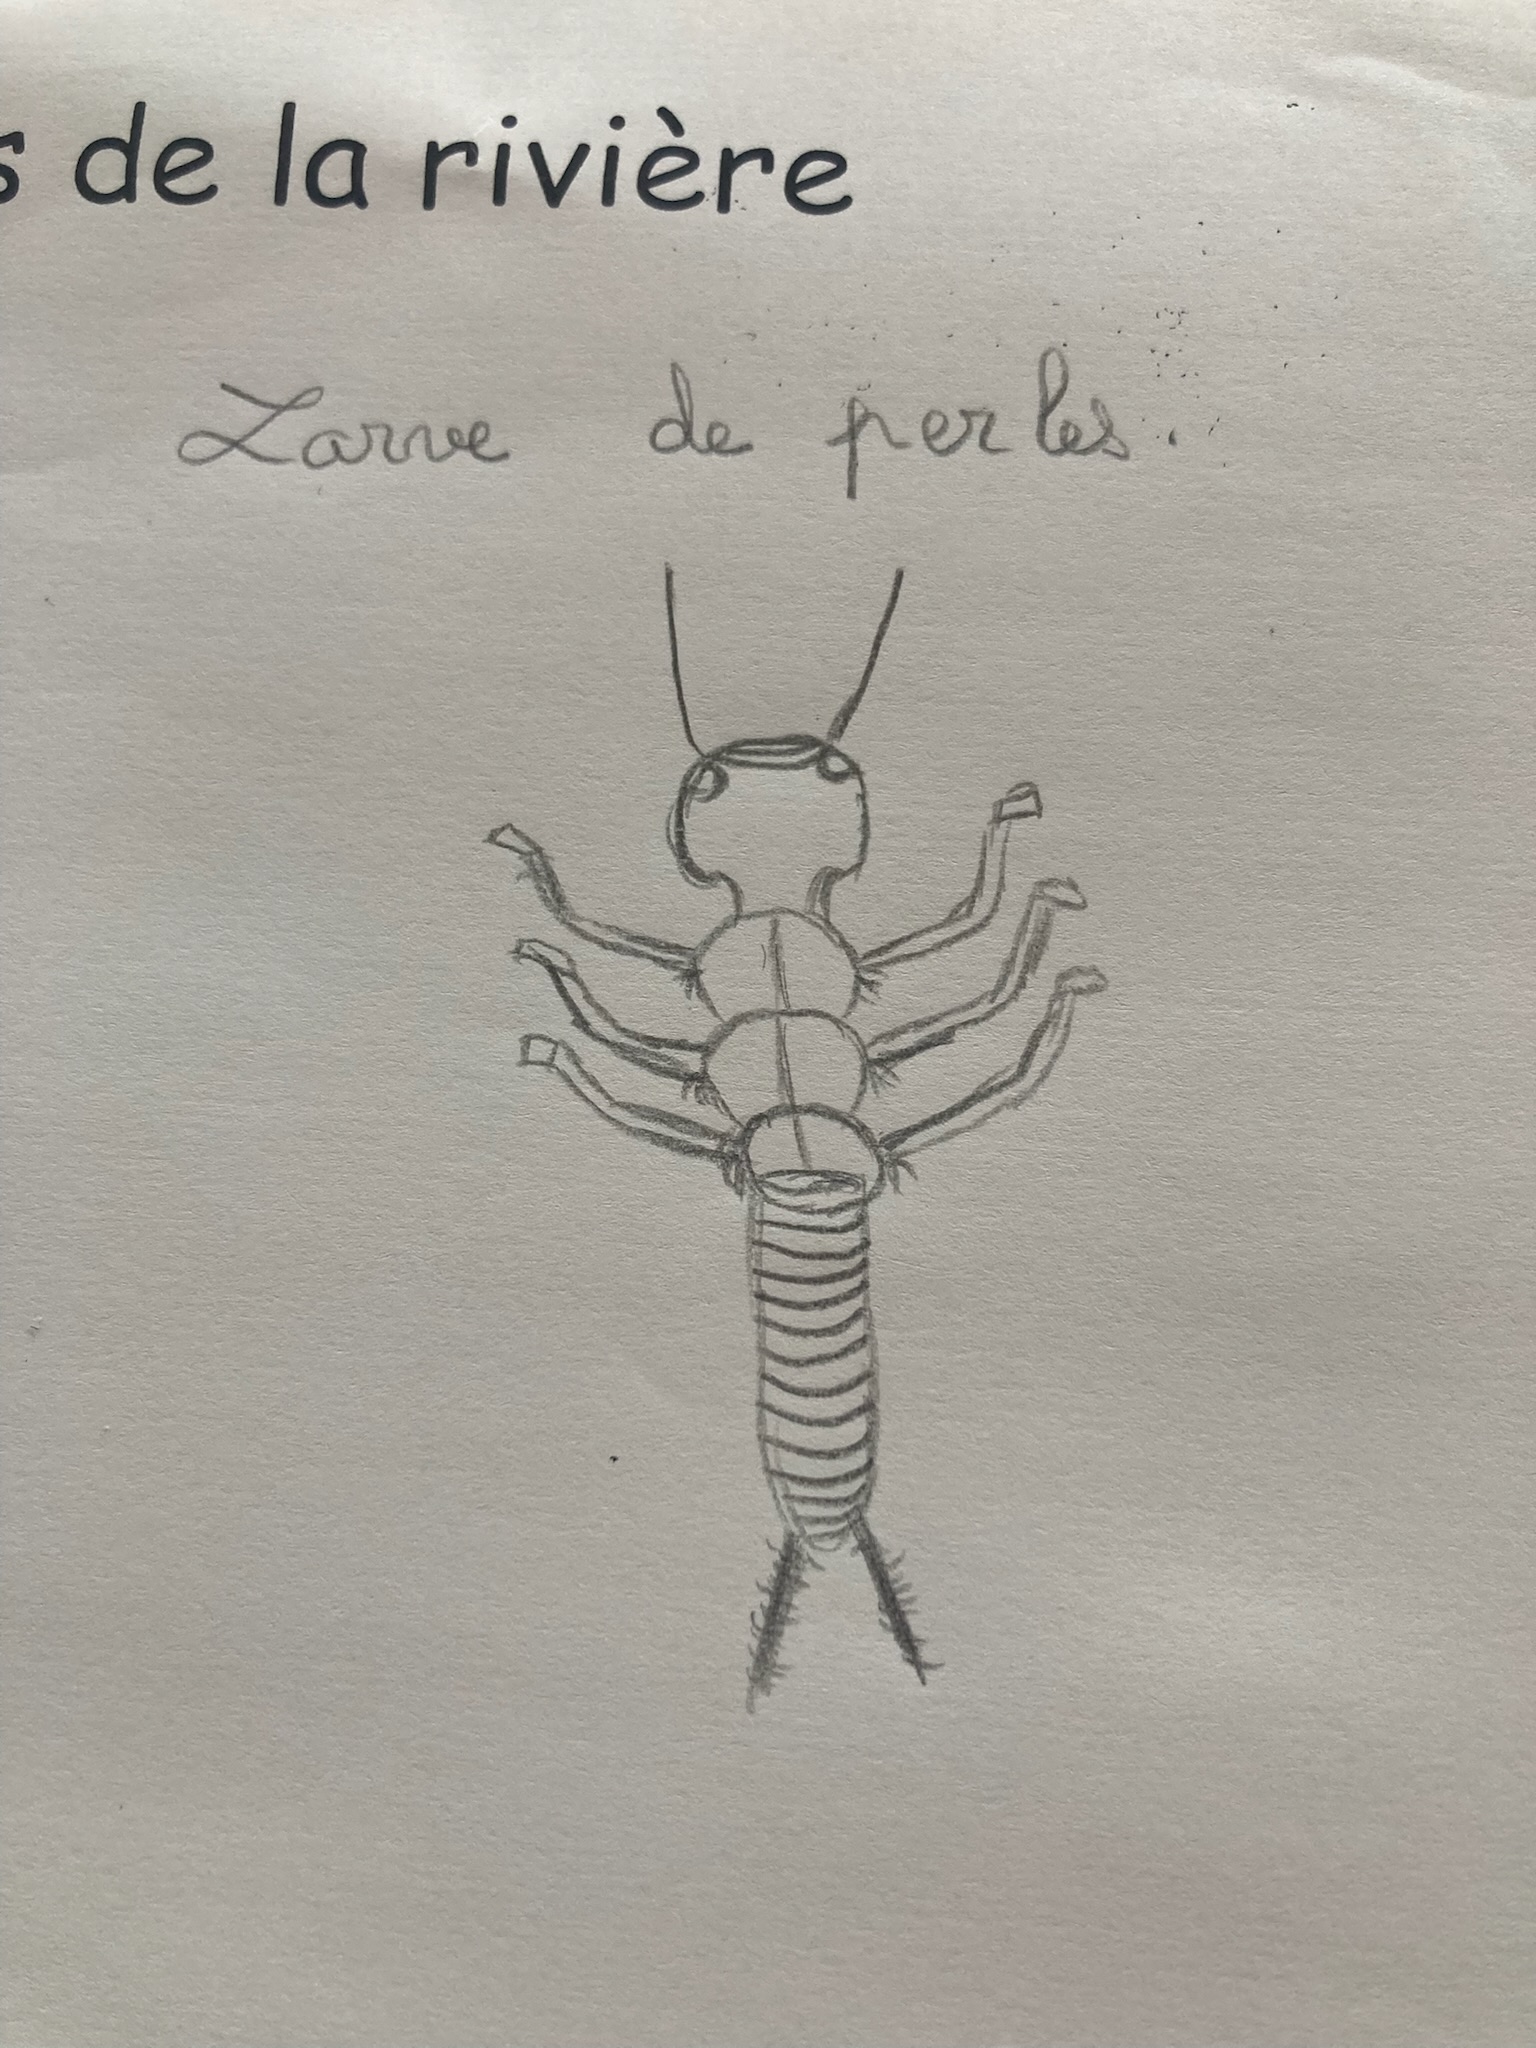 s de la rivière
Larve de perles.